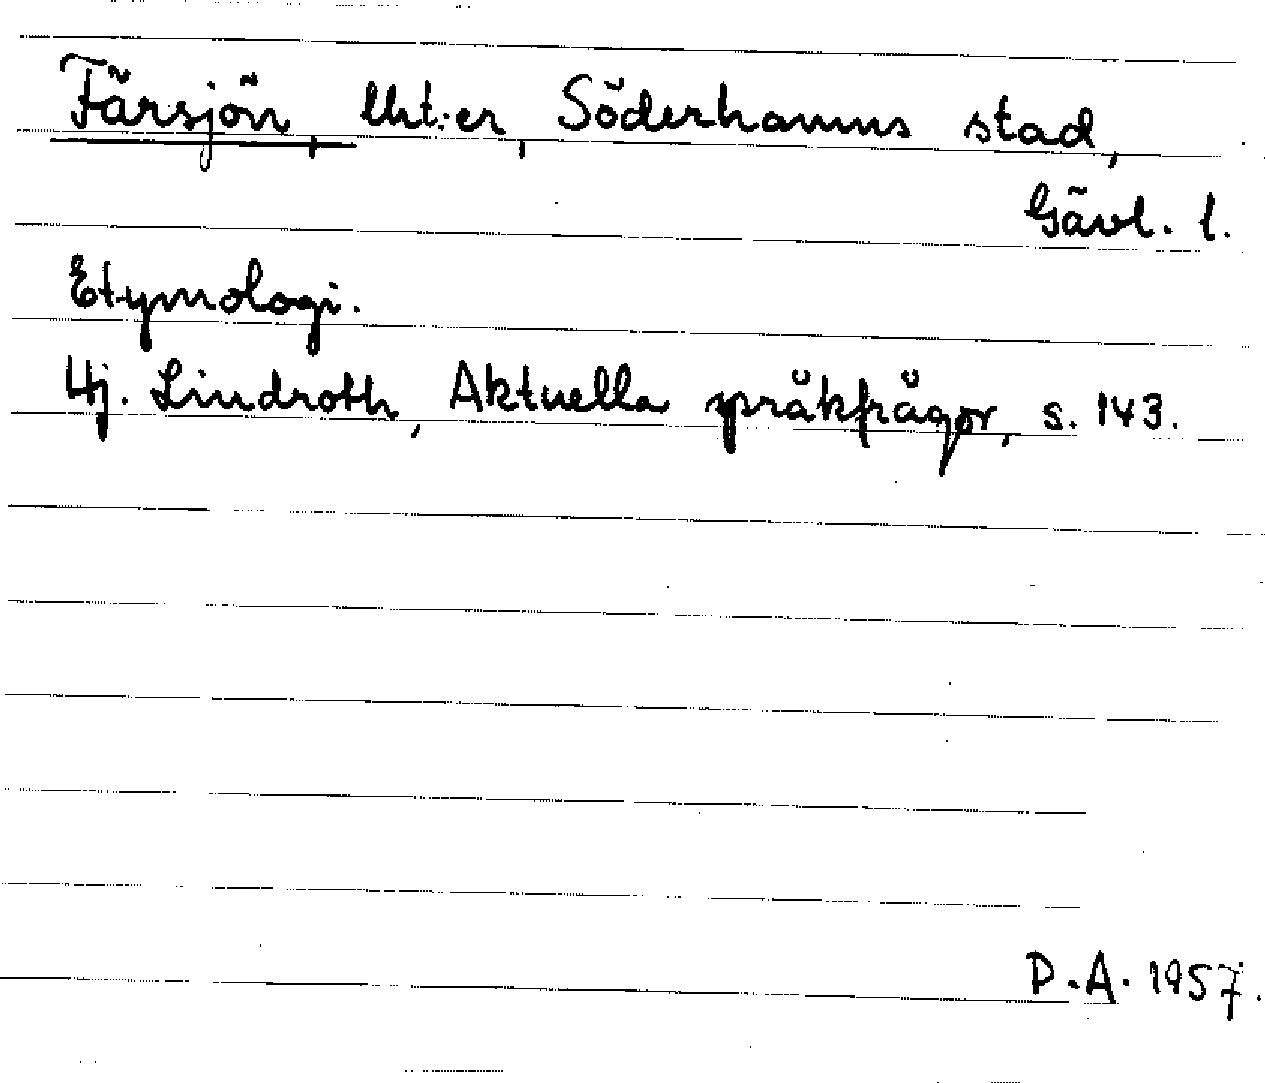 Färsjön, lht:er, Söderhamns stad,
Gävl. l.
Etymologi.
Hj. Lindroth, Aktuella språkfrågor, s. 143.
D.A. 1957.